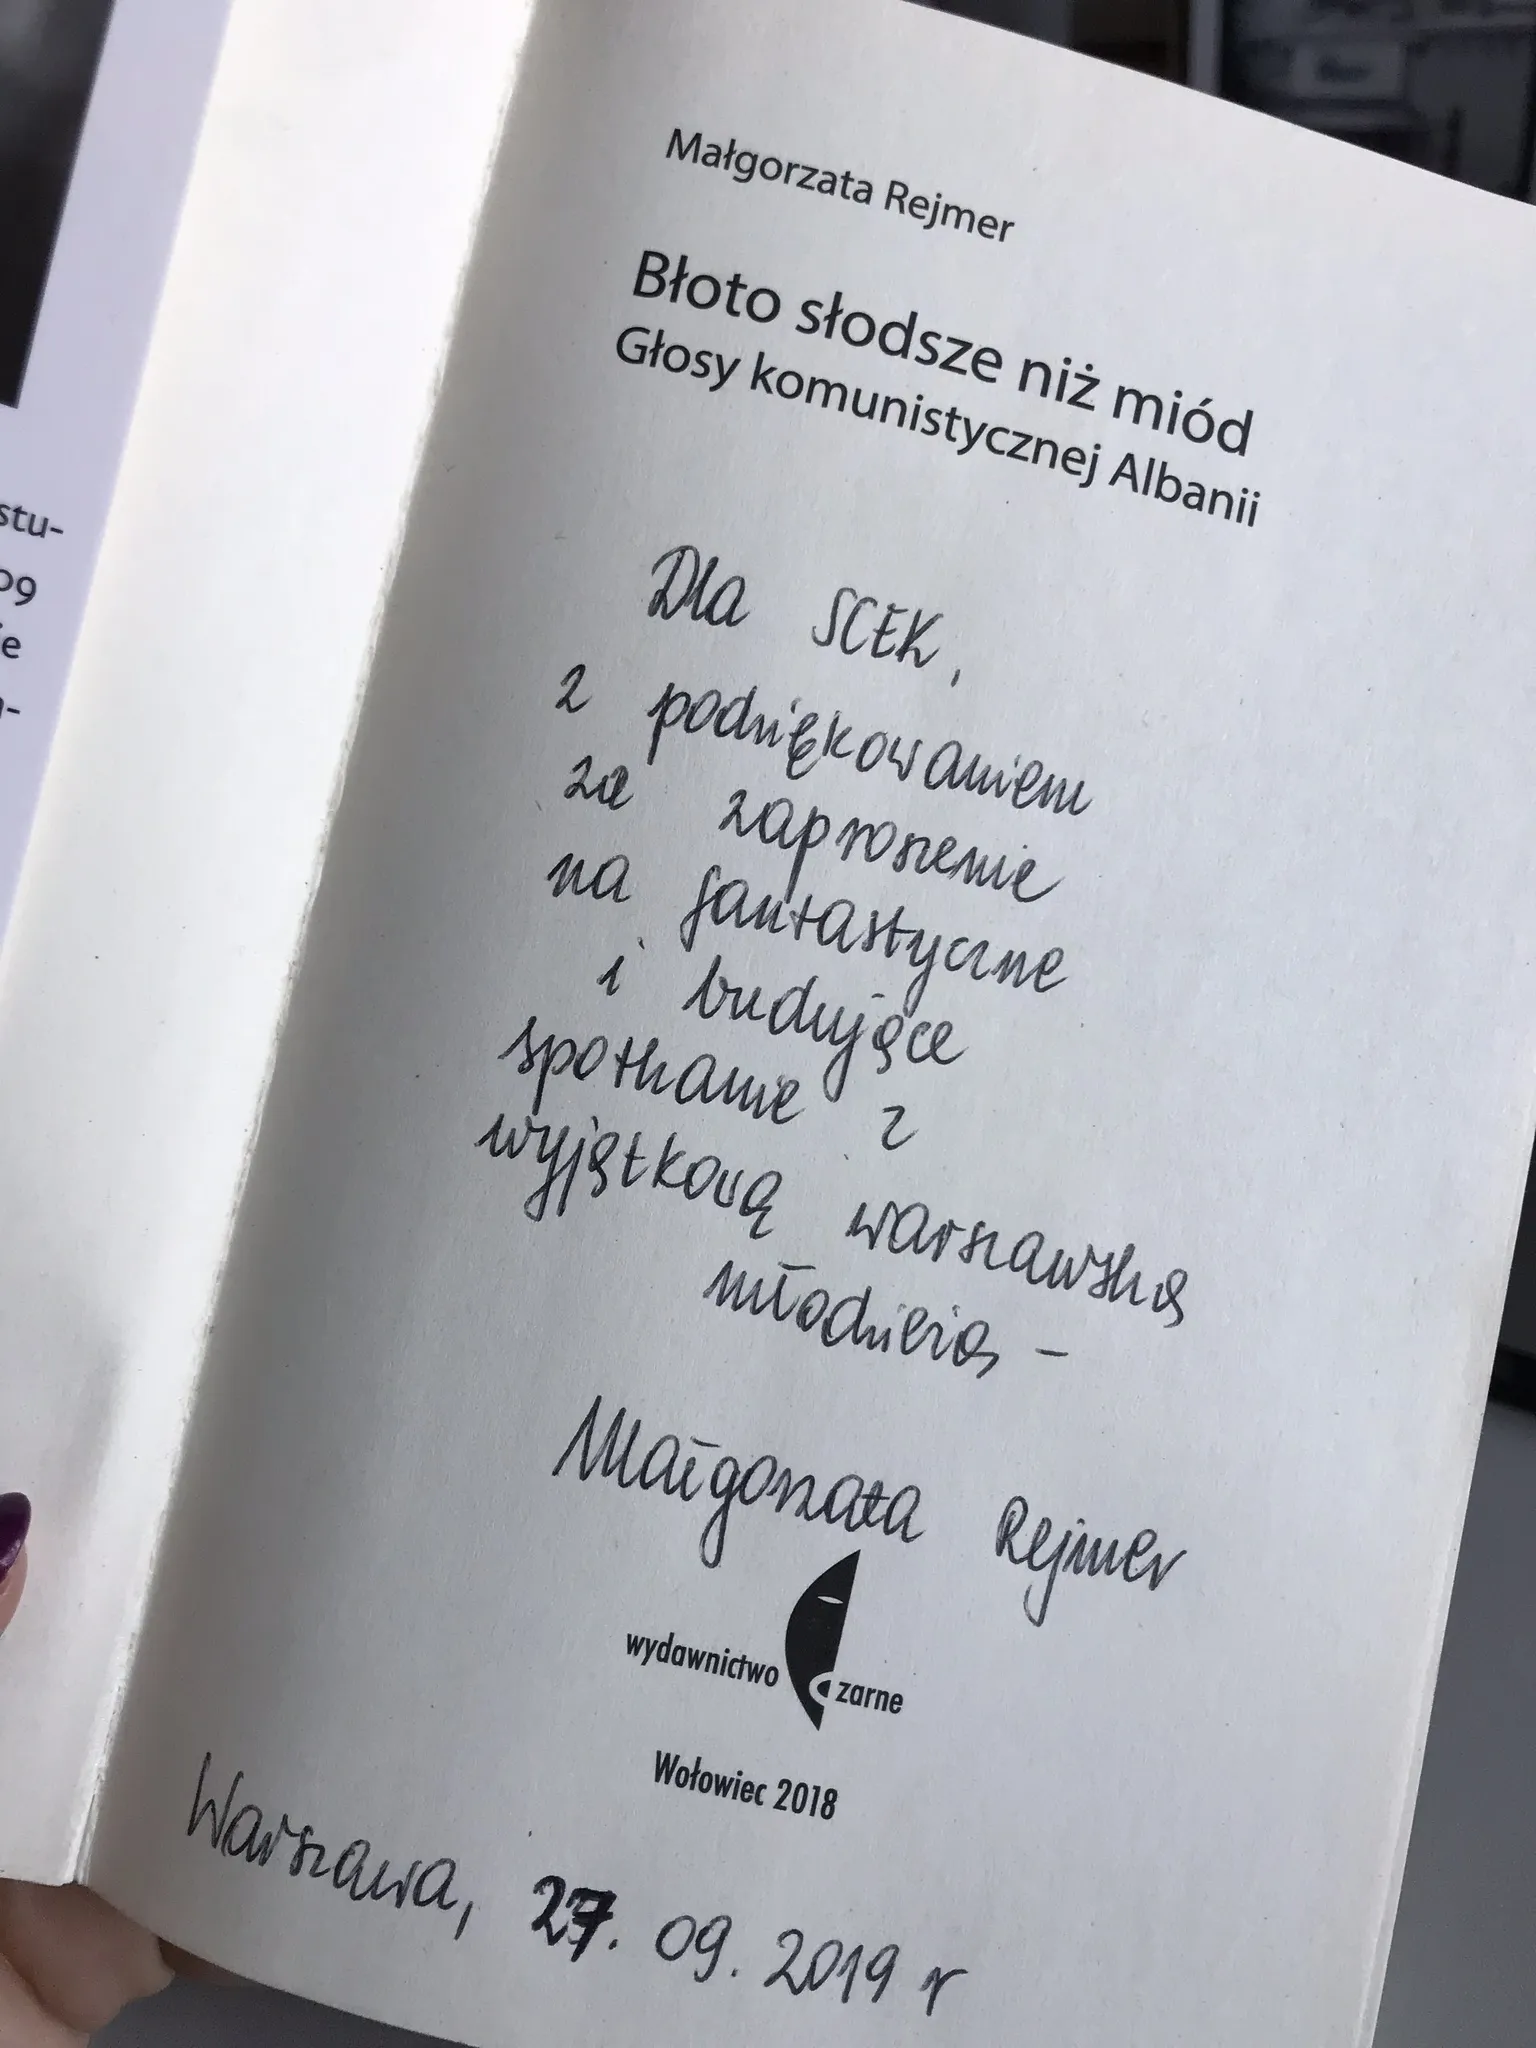 Małgorzata Rejmer
Błoto słodsze niż miód
Głosy komunistycznej Albanii
Dla SCEK,
z podziękowaniem
za zaproszenie
na fantastyczne
i budujące
spotkanie z
wyjątkową warszawską
młodzieżą –
Małgorzata Rejmer
wydawnictwo czarne
Wołowiec 2018
Warszawa, 27. 09. 2019 r
stu-
09